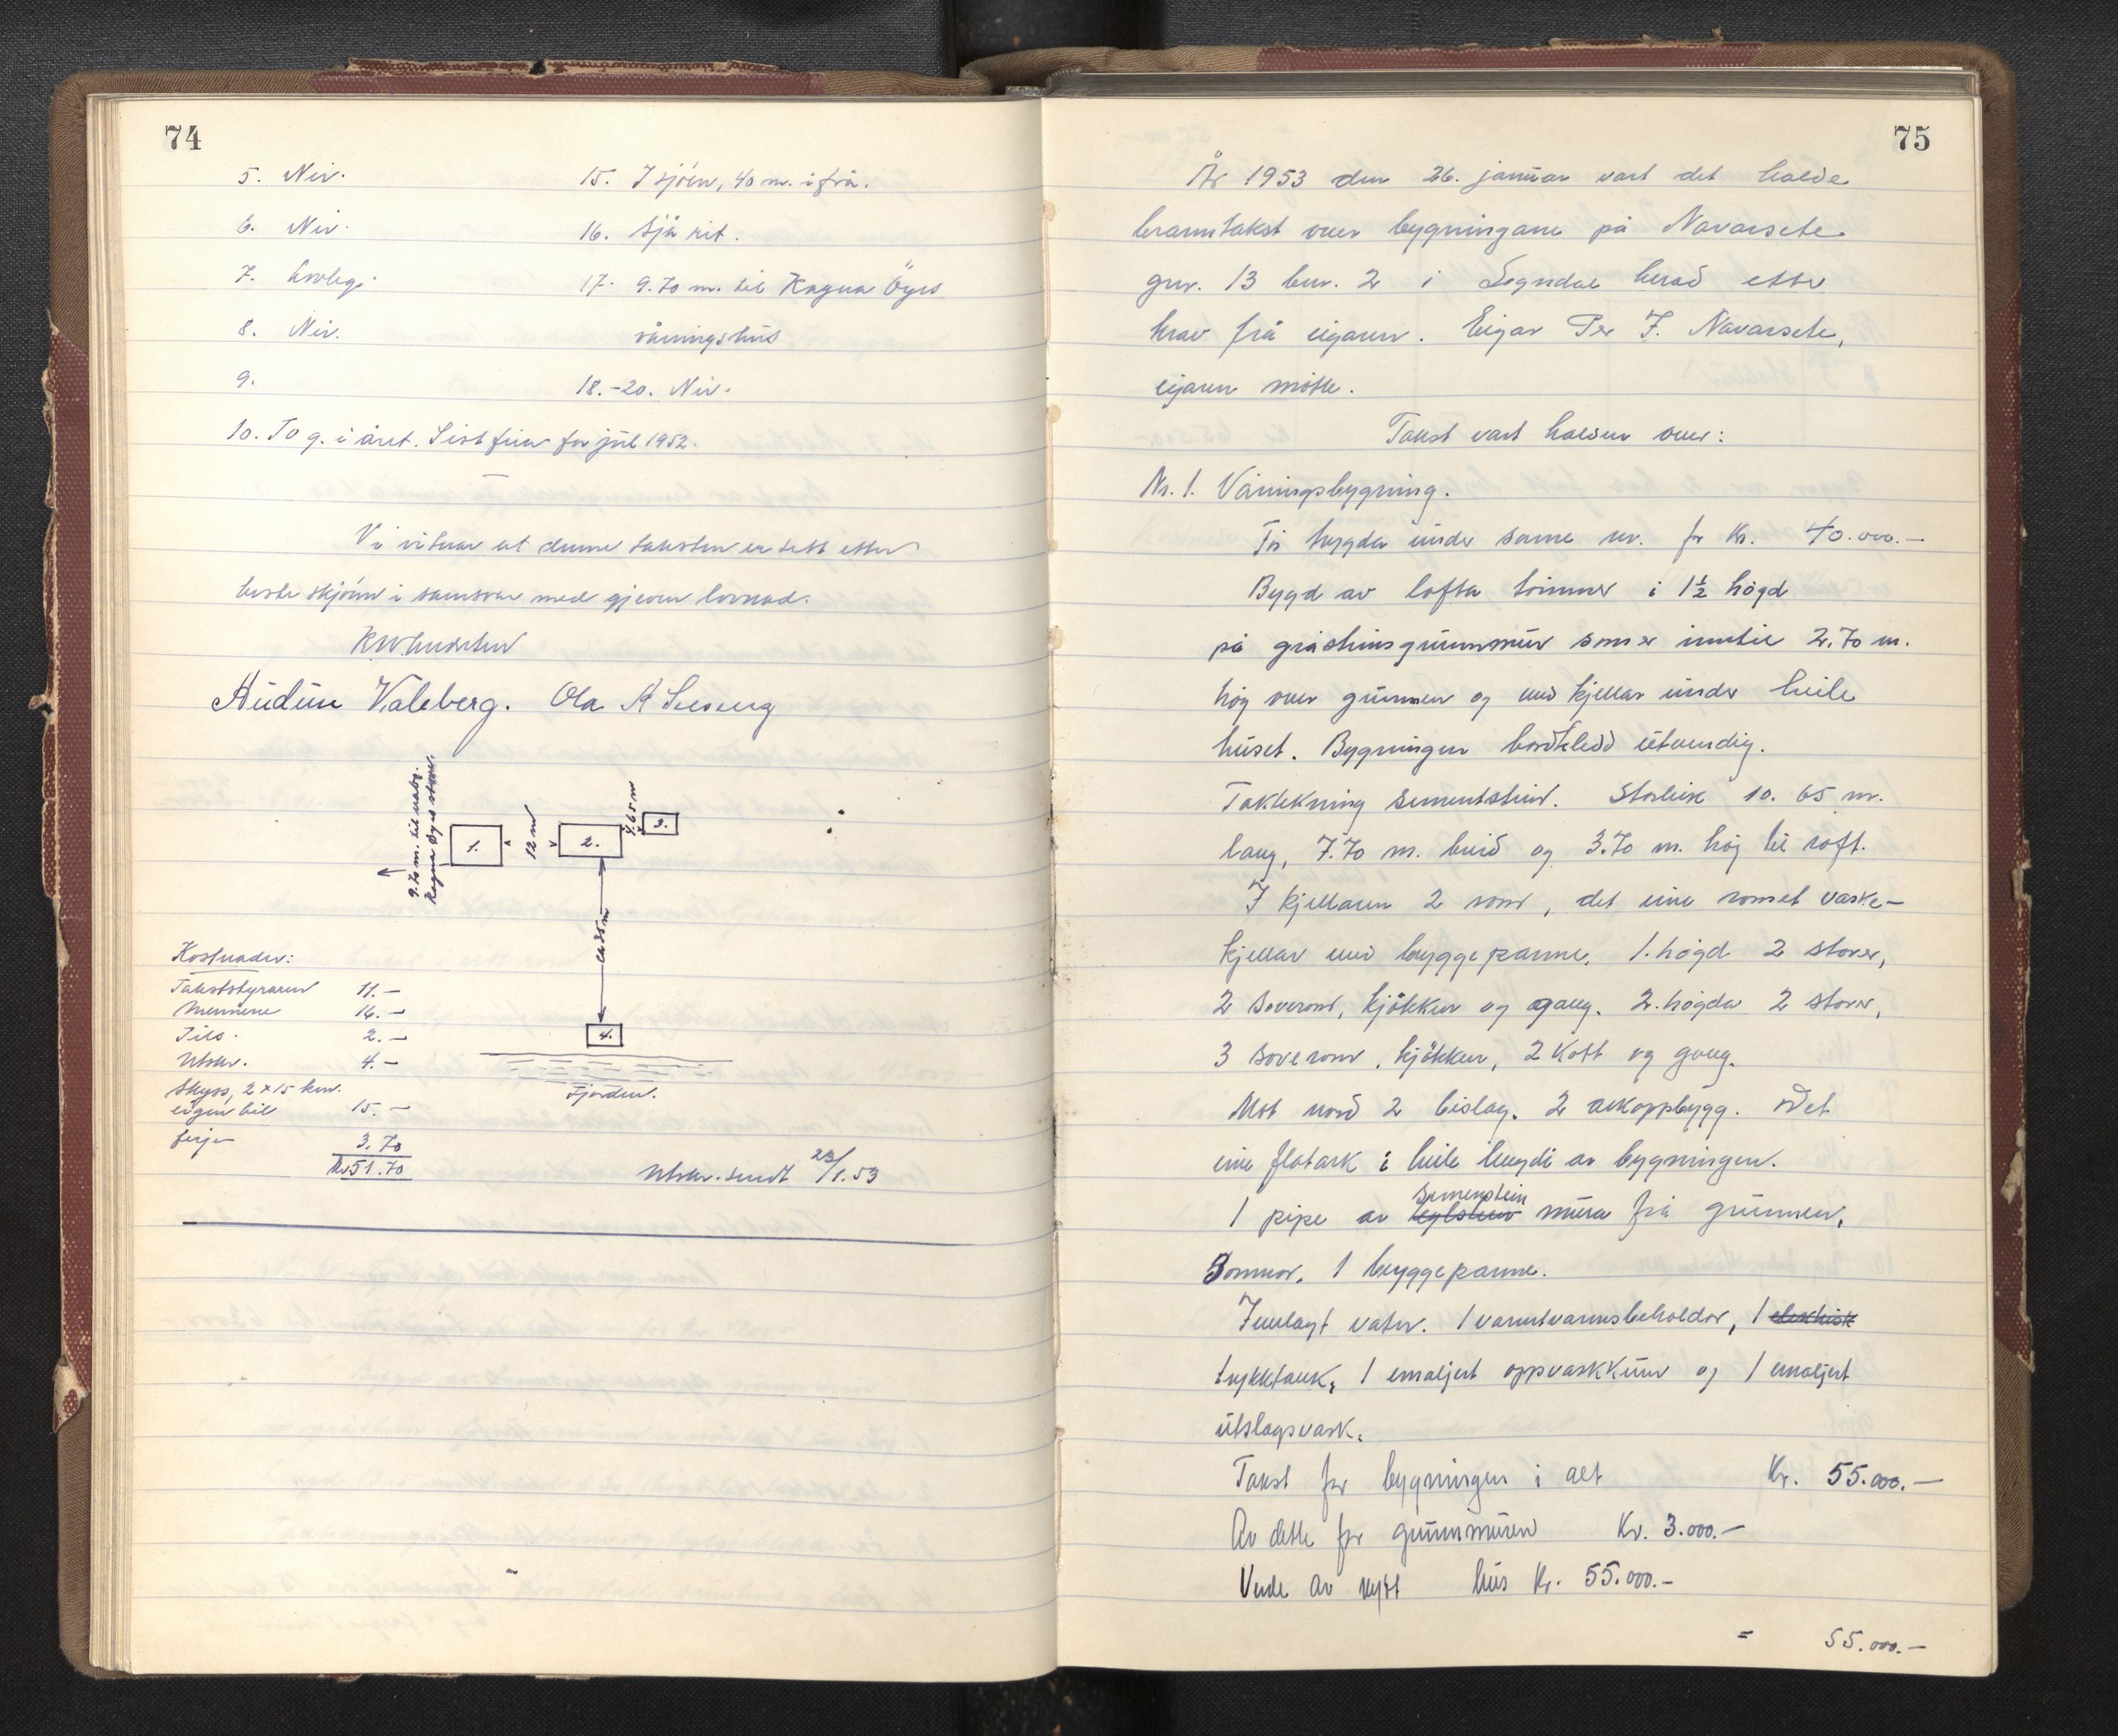 74
5. Nei.
6. Nei.
7. Lovleg.
8. Nei.
9.
10. To g. i året. Sist feia før jul 1952.
15. I sjøen, 40 m. ifrå.
16. Sjå rit.
17. 9.70 m. til Ragna Øyes
våningshus
18.-20. Nei.
Vi vitnar at denne taksten er sett etter
beste skjønn i samsvar med gjeven lovnad.
Audun Valeberg. Ola A
9.70 m. til nabo.
Ragna Øyes stove.
1.
12 m
2.
3.
ca 35 m
4.
Fjorden.
Kostnader:
Takststyraren 11.-
Mennene 16.-
Tils. 2.-
Utskr. 4.-
Skyss, 2 x 15 km.
eigen bil 15.-
ferje 3.70
Kr 51.70
Utskr. sendt 23/1.53
75
År 1953 den 26. januar vart det halde
branntakst over bygningane på Navarsete
gnr. 13 bnr. 2 i Sogndal herad etter
krav frå eigaren. Eigar Per J. Navarsete,
eigaren møtte.
Takst vart halden over:
Nr. 1. Våningsbygning.
Før trygda under same nr. for kr. 40.000.-
Bygd av lafta tømmer i 1½ høgd
på gråsteinsgrunnmur som er inntil 2.70 m.
høg over grunnen og med kjellar under heile
huset. Bygningen bordkledd utvendig.
Taktekning sementstein. Storleik 10.65 m.
lang, 7.70 m. breid og 3.70 m. høg til röft.
I kjellaren 2 rom, det eine romet vaske-
kjellar med bryggepanne. 1. høgd 2 stover,
2 soverom, kjøkken og gang. 2. høgda 2 stover,
3 soverom, kjøkken, 2 kott og gang.
Mot nord 2 bislag. 2 arkoppbygg. Det
eine flatark i heile lengdi av bygningen.
1 pipe av teglstein sementstein mura frå grunnen,
3 omnar, 1 bryggepanne.
Innlagt vatn. 1 varmtvannsbeholdar, 1 elektrisk
trykktank, 1 emaljert oppvaskkum og 1 emaljert
utslagsvask.
Takst for bygningen i alt Kr. 55.000.-
Av dette for grunnmuren Kr. 3.000.-
Verde av nytt hus Kr. 55.000.-
= 55.000.-